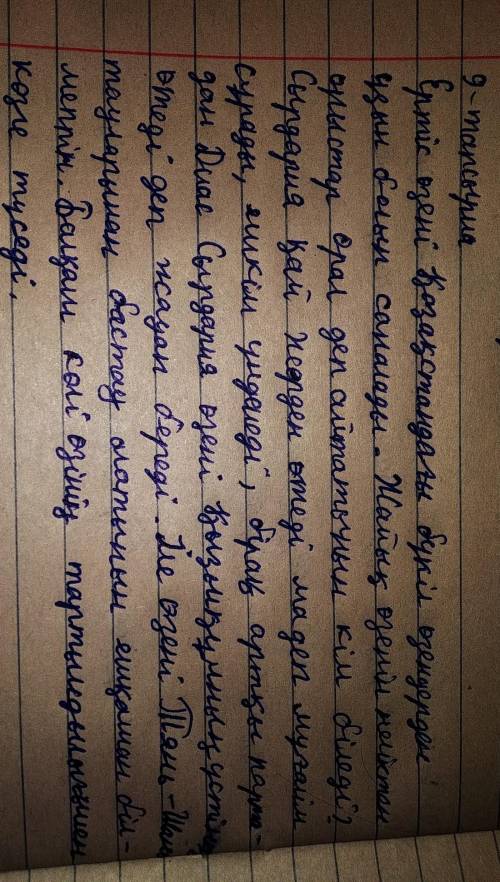 9-тапсырма
Ертіс өзені Қазақстандағы бүкіл өзендерден
ұзын болып саналады. Жайық өзенін неліктен
орыстар Орал деп айтатынын кім біледі?
Сырдария қай жерден өтеді ма деп мұғалім
сұрады, ешкім үндемеді, бірақ артқы парта-
дан Диас Сырдария өзені Қызылқұмның үстінен
өтеді деп жауап береді. Іле өзені Тянь-Шань
тауларынан бастау алатынын ешқашан біл-
меппін. Балқаш көлі өзінің тартымдылығымен
көзге түседі.